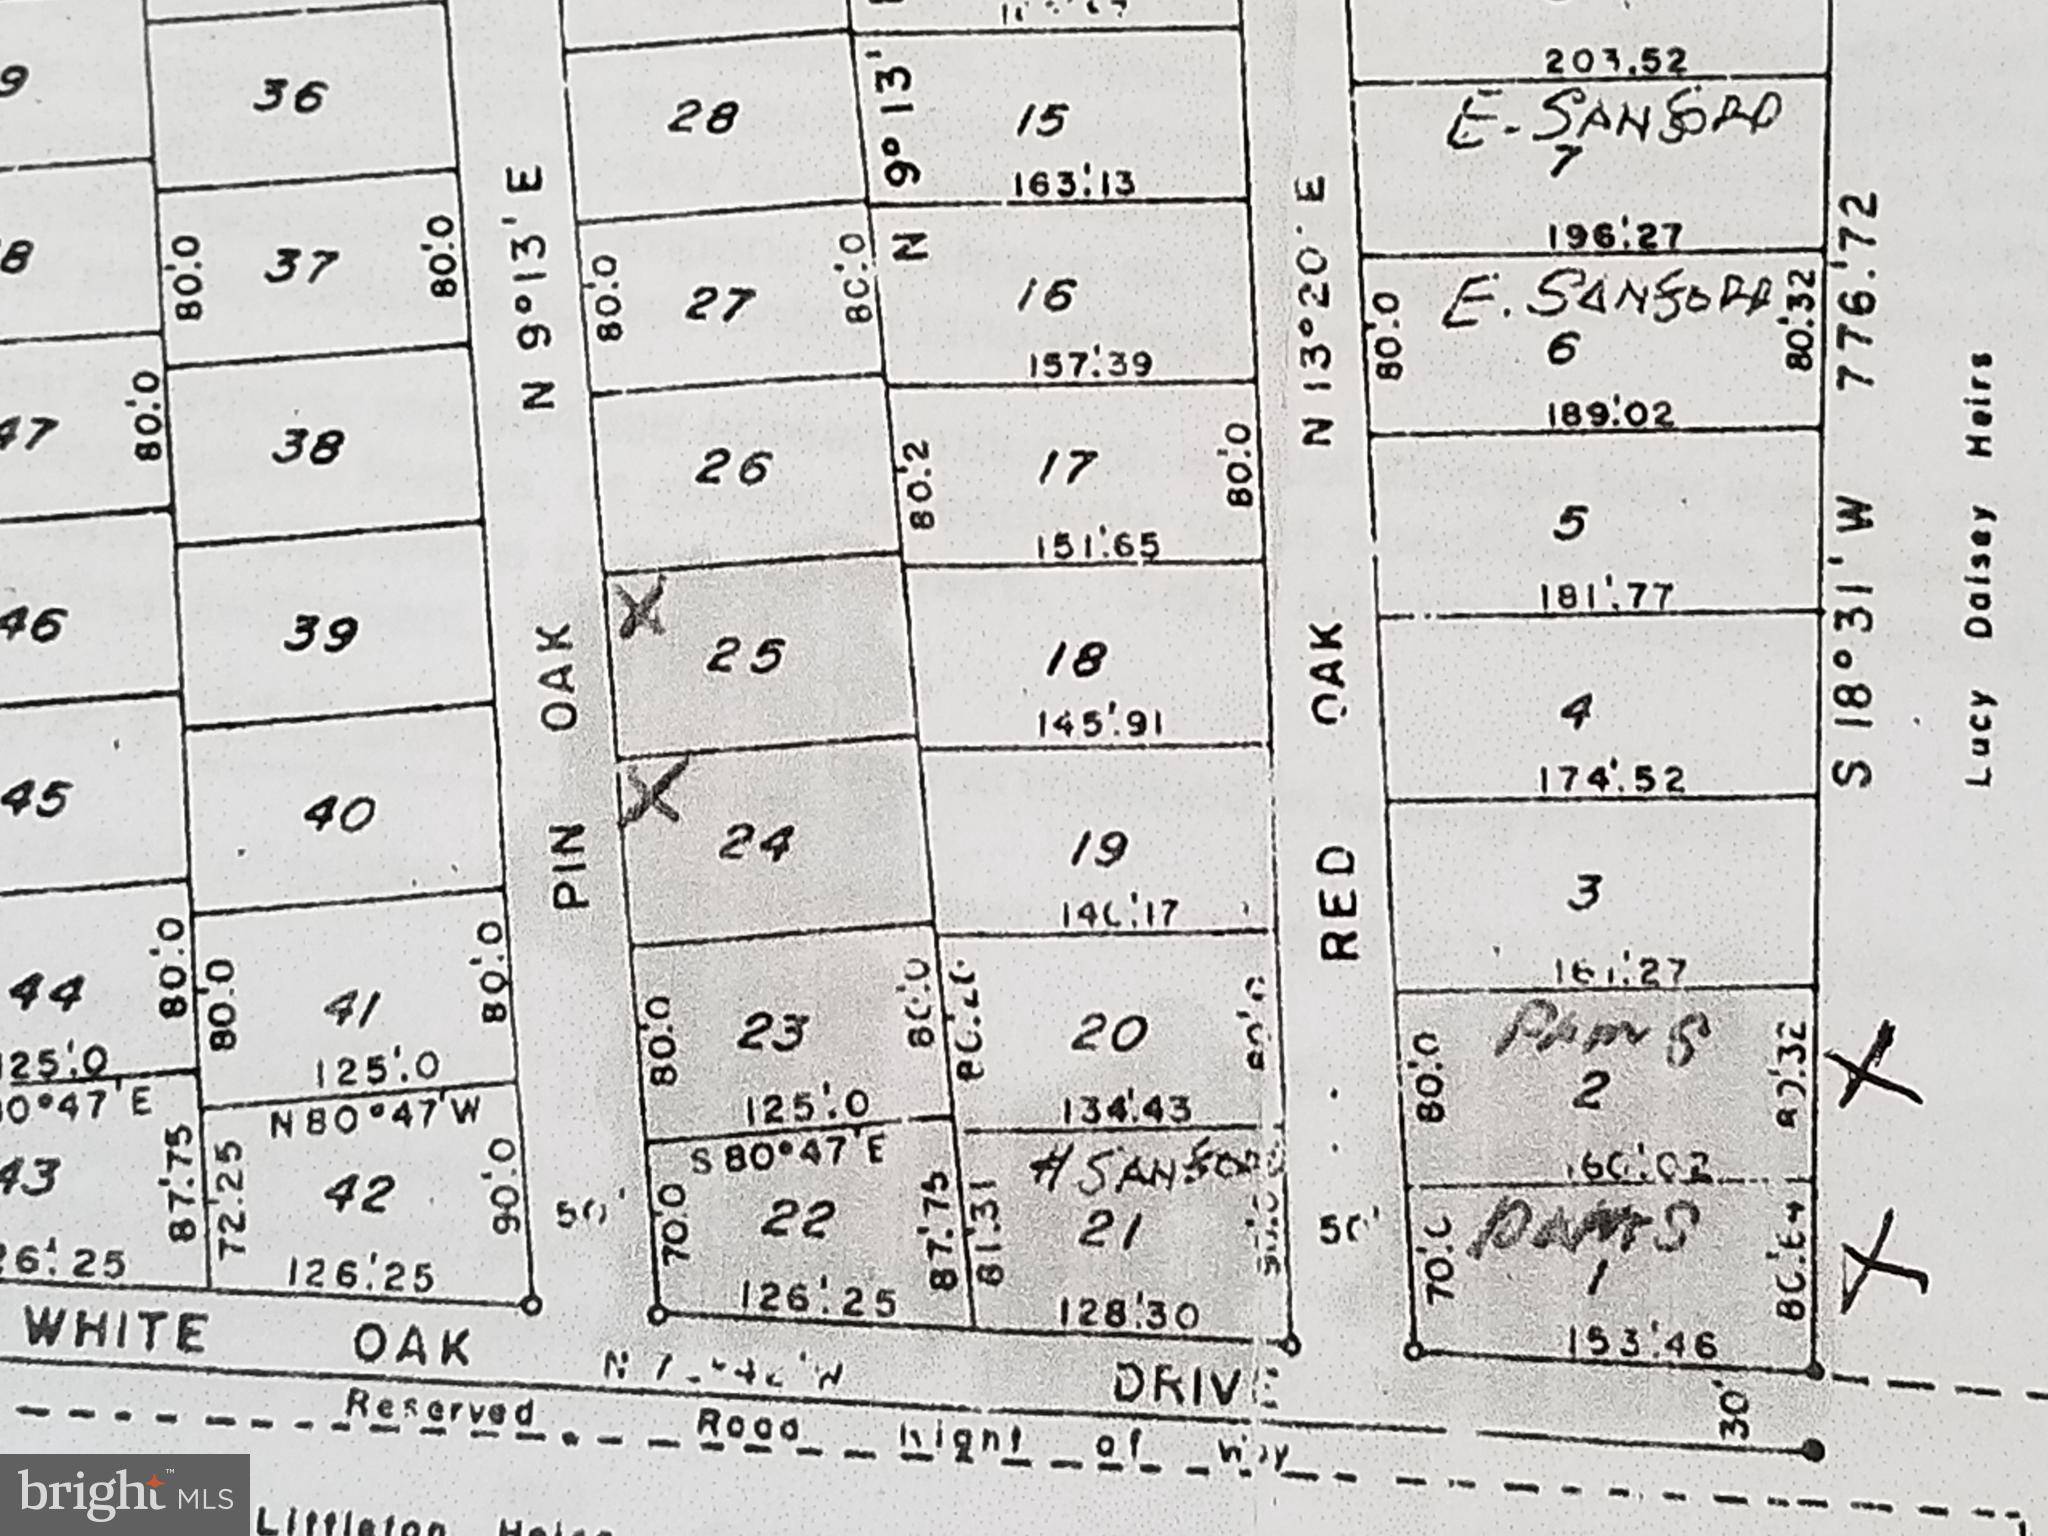 203.52
9
36
28
9°13'
15
163.'13
E. SANFORD
7
196.'27
8
80.'0
37
80.'0
N 9°13' E
80.'0
27
80.'0
N
16
157.'39
N 13°20' E
80.'0
E. SANFORD
6
80.'32
189.'02
S 18°31' W 776.'72
Lucy Daisey Heirs
47
80.'0
38
26
80.'2
17
80.'0
151.'65
5
181.'77
46
39
PIN OAK
25
18
145.'91
RED OAK
4
174.'52
45
40
24
19
3
44
80.'0
125.'0
80.'0
41
80.'0
125.'0
80.'0
23
80.'0
125.'0
20
134.'43
80.'0
2
80.'32
°47' E
N 80°47' W
S 80°47' E
43
87.'75
26.'25
72.'25
42
90.'0
126.'25
50'
70.'0
22
87.'75
126.'25
81.'31
H SANFORD
21
128.'30
50'
70.'0
1
153.'46
WHITE OAK DRIVE
30'
Reserved Road Right of Way
bright™ MLS
Littleton Heirs